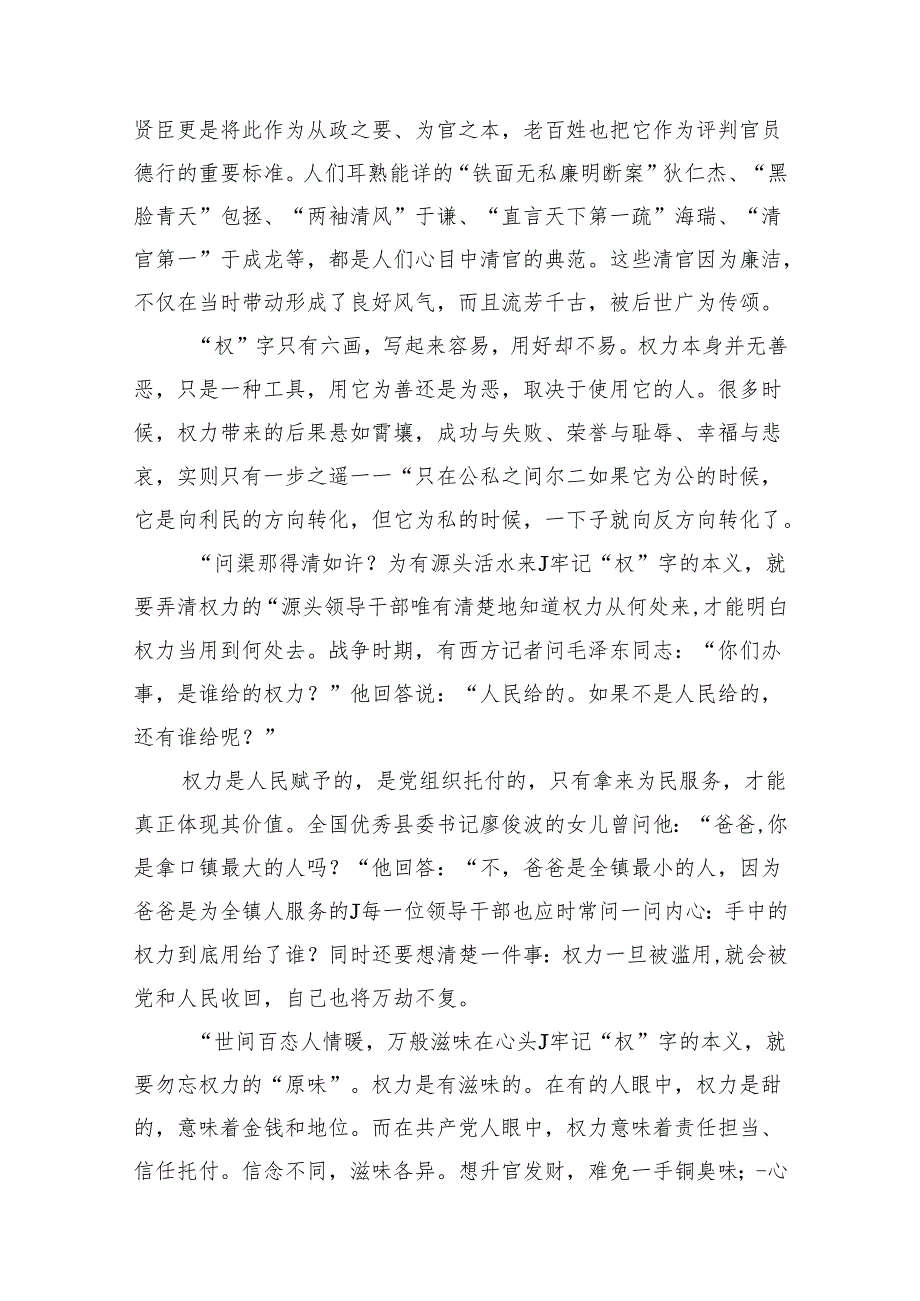 贤臣更是将此作为从政之要、为官之本，老百姓也把它作为评判官员
德行的重要标准。人们耳熟能详的“铁面无私廉明断案”狄仁杰、“黑
脸青天”包拯、“两袖清风”于谦、“直言天下第一疏”海瑞、“清
官第一”于成龙等，都是人们心目中清官的典范。这些清官因为廉洁，
不仅在当时带动形成了良好风气，而且流芳千古，被后世广为传颂。
“权”字只有六画，写起来容易，用好却不易。权力本身并无善
恶，只是一种工具，用它为善还是为恶，取决于使用它的人。很多时
候，权力带来的后果悬如霄壤，成功与失败、荣誉与耻辱、幸福与悲
哀，实则只有一步之遥一一“只在公私之间尔二如果它为公的时候，
它是向利民的方向转化，但它为私的时候，一下子就向反方向转化了。
“问渠那得清如许？为有源头活水来J牢记“权”字的本义，就
要弄清权力的“源头领导干部唯有清楚地知道权力从何处来,才能明白
权力当用到何处去。战争时期，有西方记者问毛泽东同志：“你们办
事，是谁给的权力？”他回答说：“人民给的。如果不是人民给的，
还有谁给呢？”
权力是人民赋予的，是党组织托付的，只有拿来为民服务，才能
真正体现其价值。全国优秀县委书记廖俊波的女儿曾问他：“爸爸,你
是拿口镇最大的人吗？“他回答：“不，爸爸是全镇最小的人，因为
爸爸是为全镇人服务的J每一位领导干部也应时常问一问内心：手中的
权力到底用给了谁？同时还要想清楚一件事：权力一旦被滥用,就会被
党和人民收回，自己也将万劫不复。
“世间百态人情暖，万般滋味在心头J牢记“权”字的本义，就
要勿忘权力的“原味”。权力是有滋味的。在有的人眼中，权力是甜
的，意味着金钱和地位。而在共产党人眼中，权力意味着责任担当、
信任托付。信念不同，滋味各异。想升官发财，难免一手铜臭味；-心